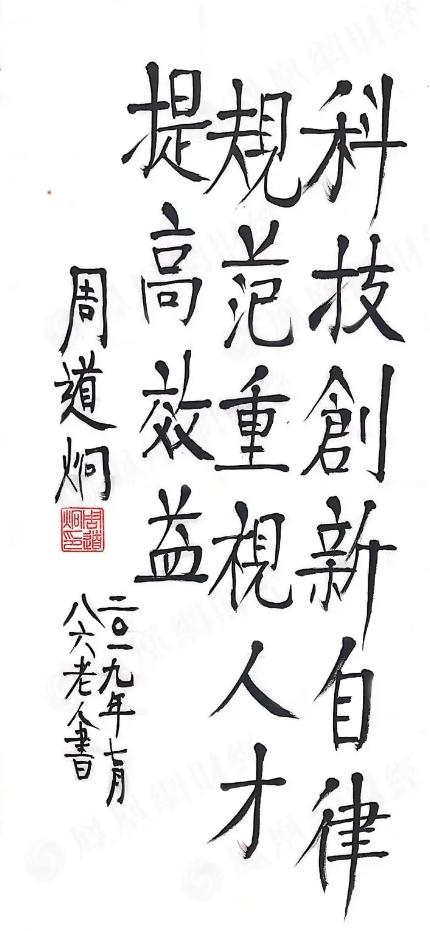 科技創新自律
規范重視人才
提高效益
周道炯
周道炯印
二〇一九年七月
八六老人書
鳳凰網財經